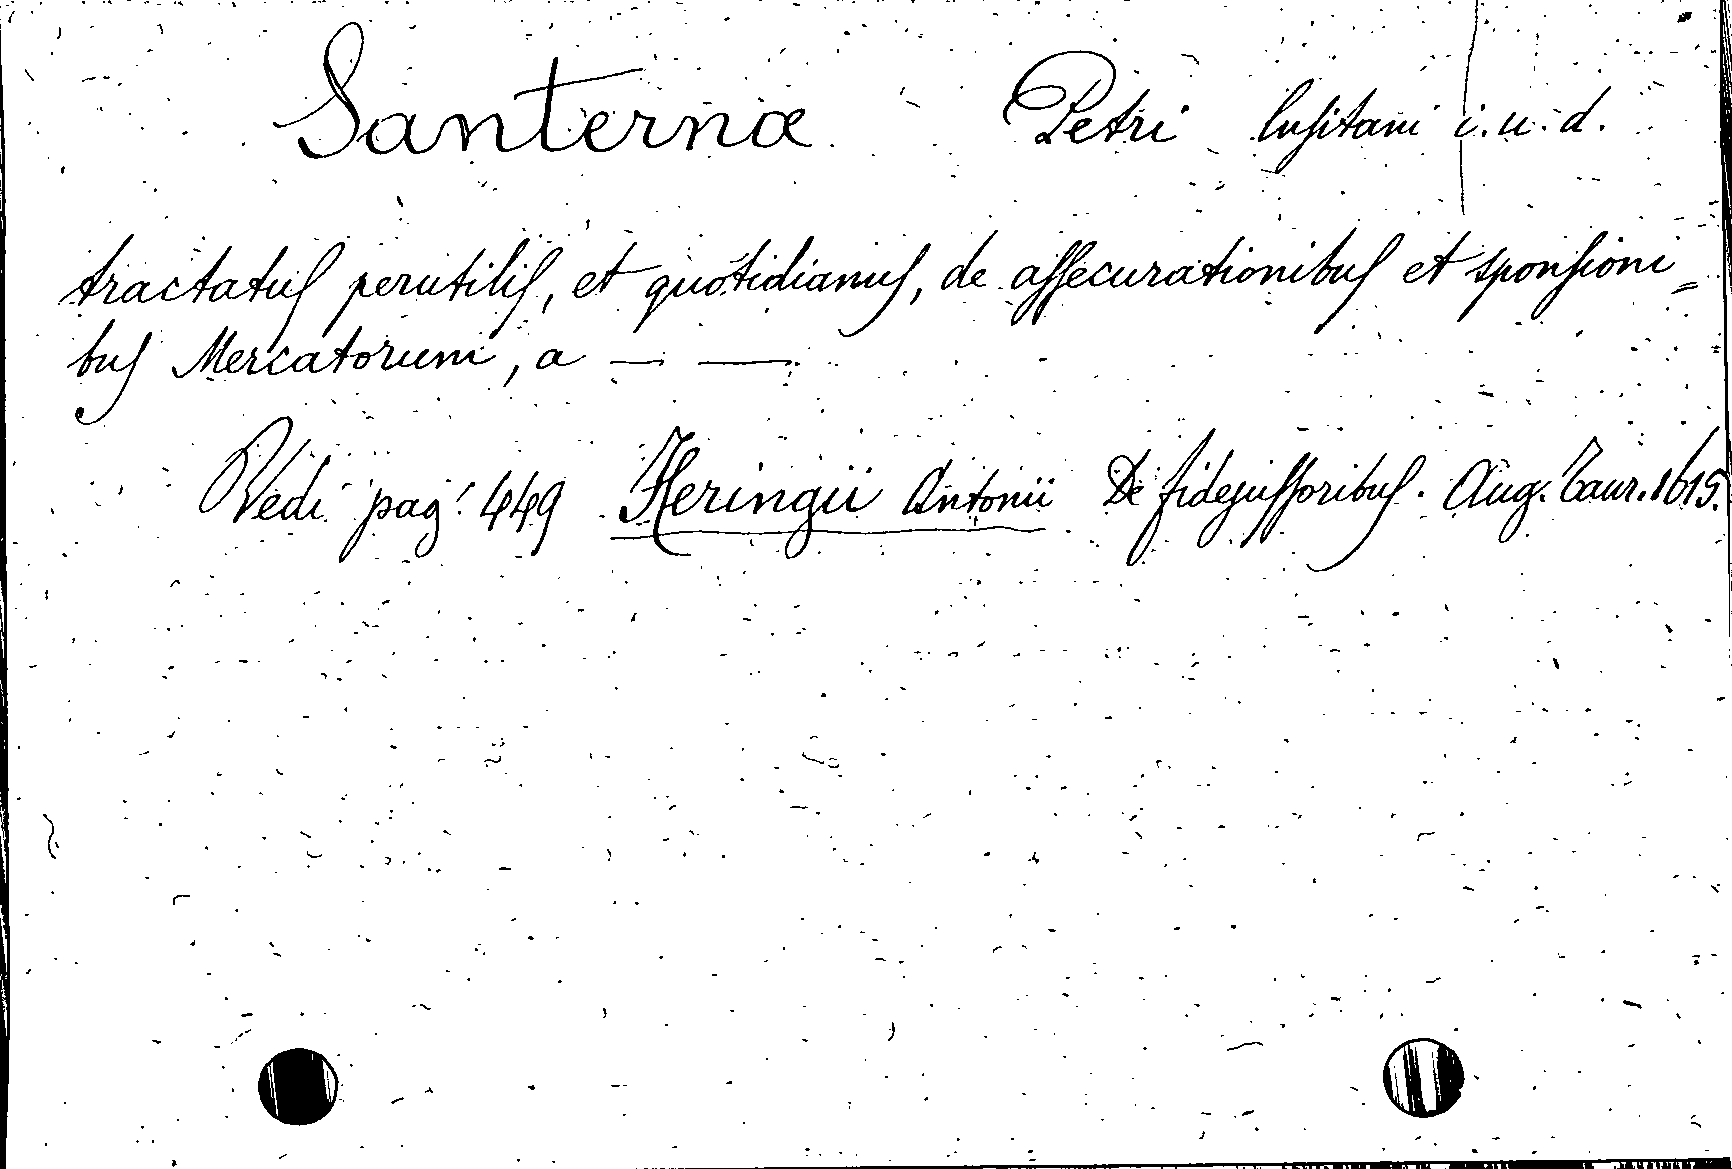 Santernæ Petri lusitani i. u. d.
tractatus perutilis, et quotidianus, de assecurationibus et sponsioni=
bus Mercatorum, a — —
Vedi pag. 449 Heringii Antonii De fidejussoribus. Aug. Taur. 1615.